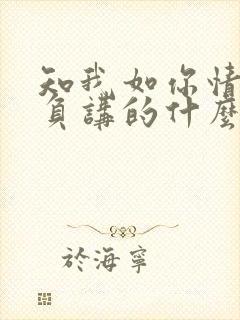 知我如你情
負講的什麼
於海寧